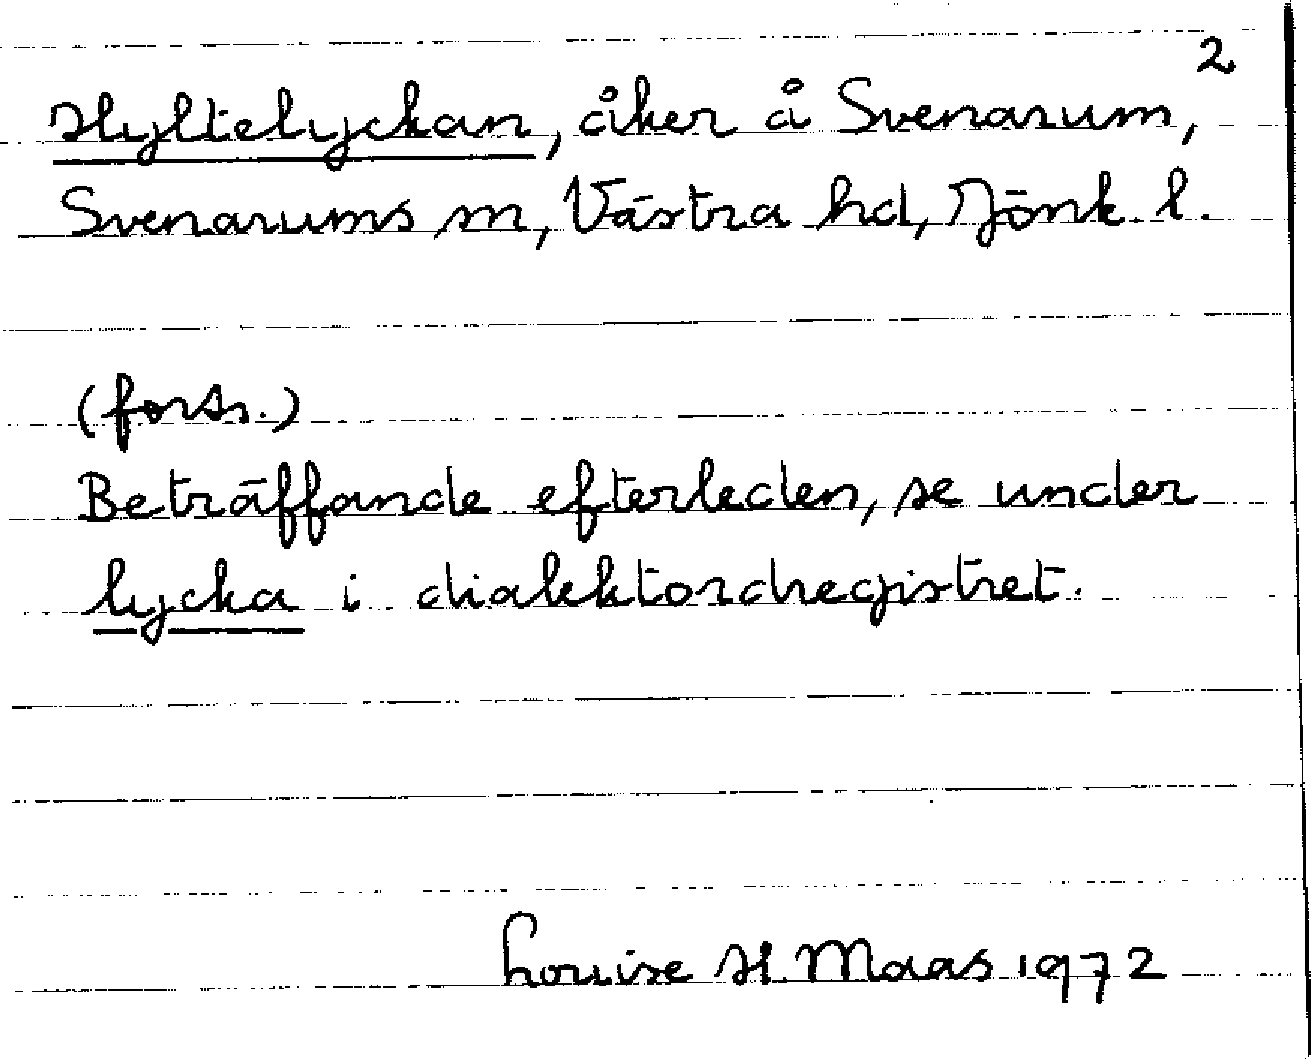 2
Hyltelyckan, åker å Svenarum,
Svenarums sn, Västra hd, Jönk. l.
(forts.)
Beträffande efterleden, se under
lycka i dialektordregistret.
Louise H. Maas 1972